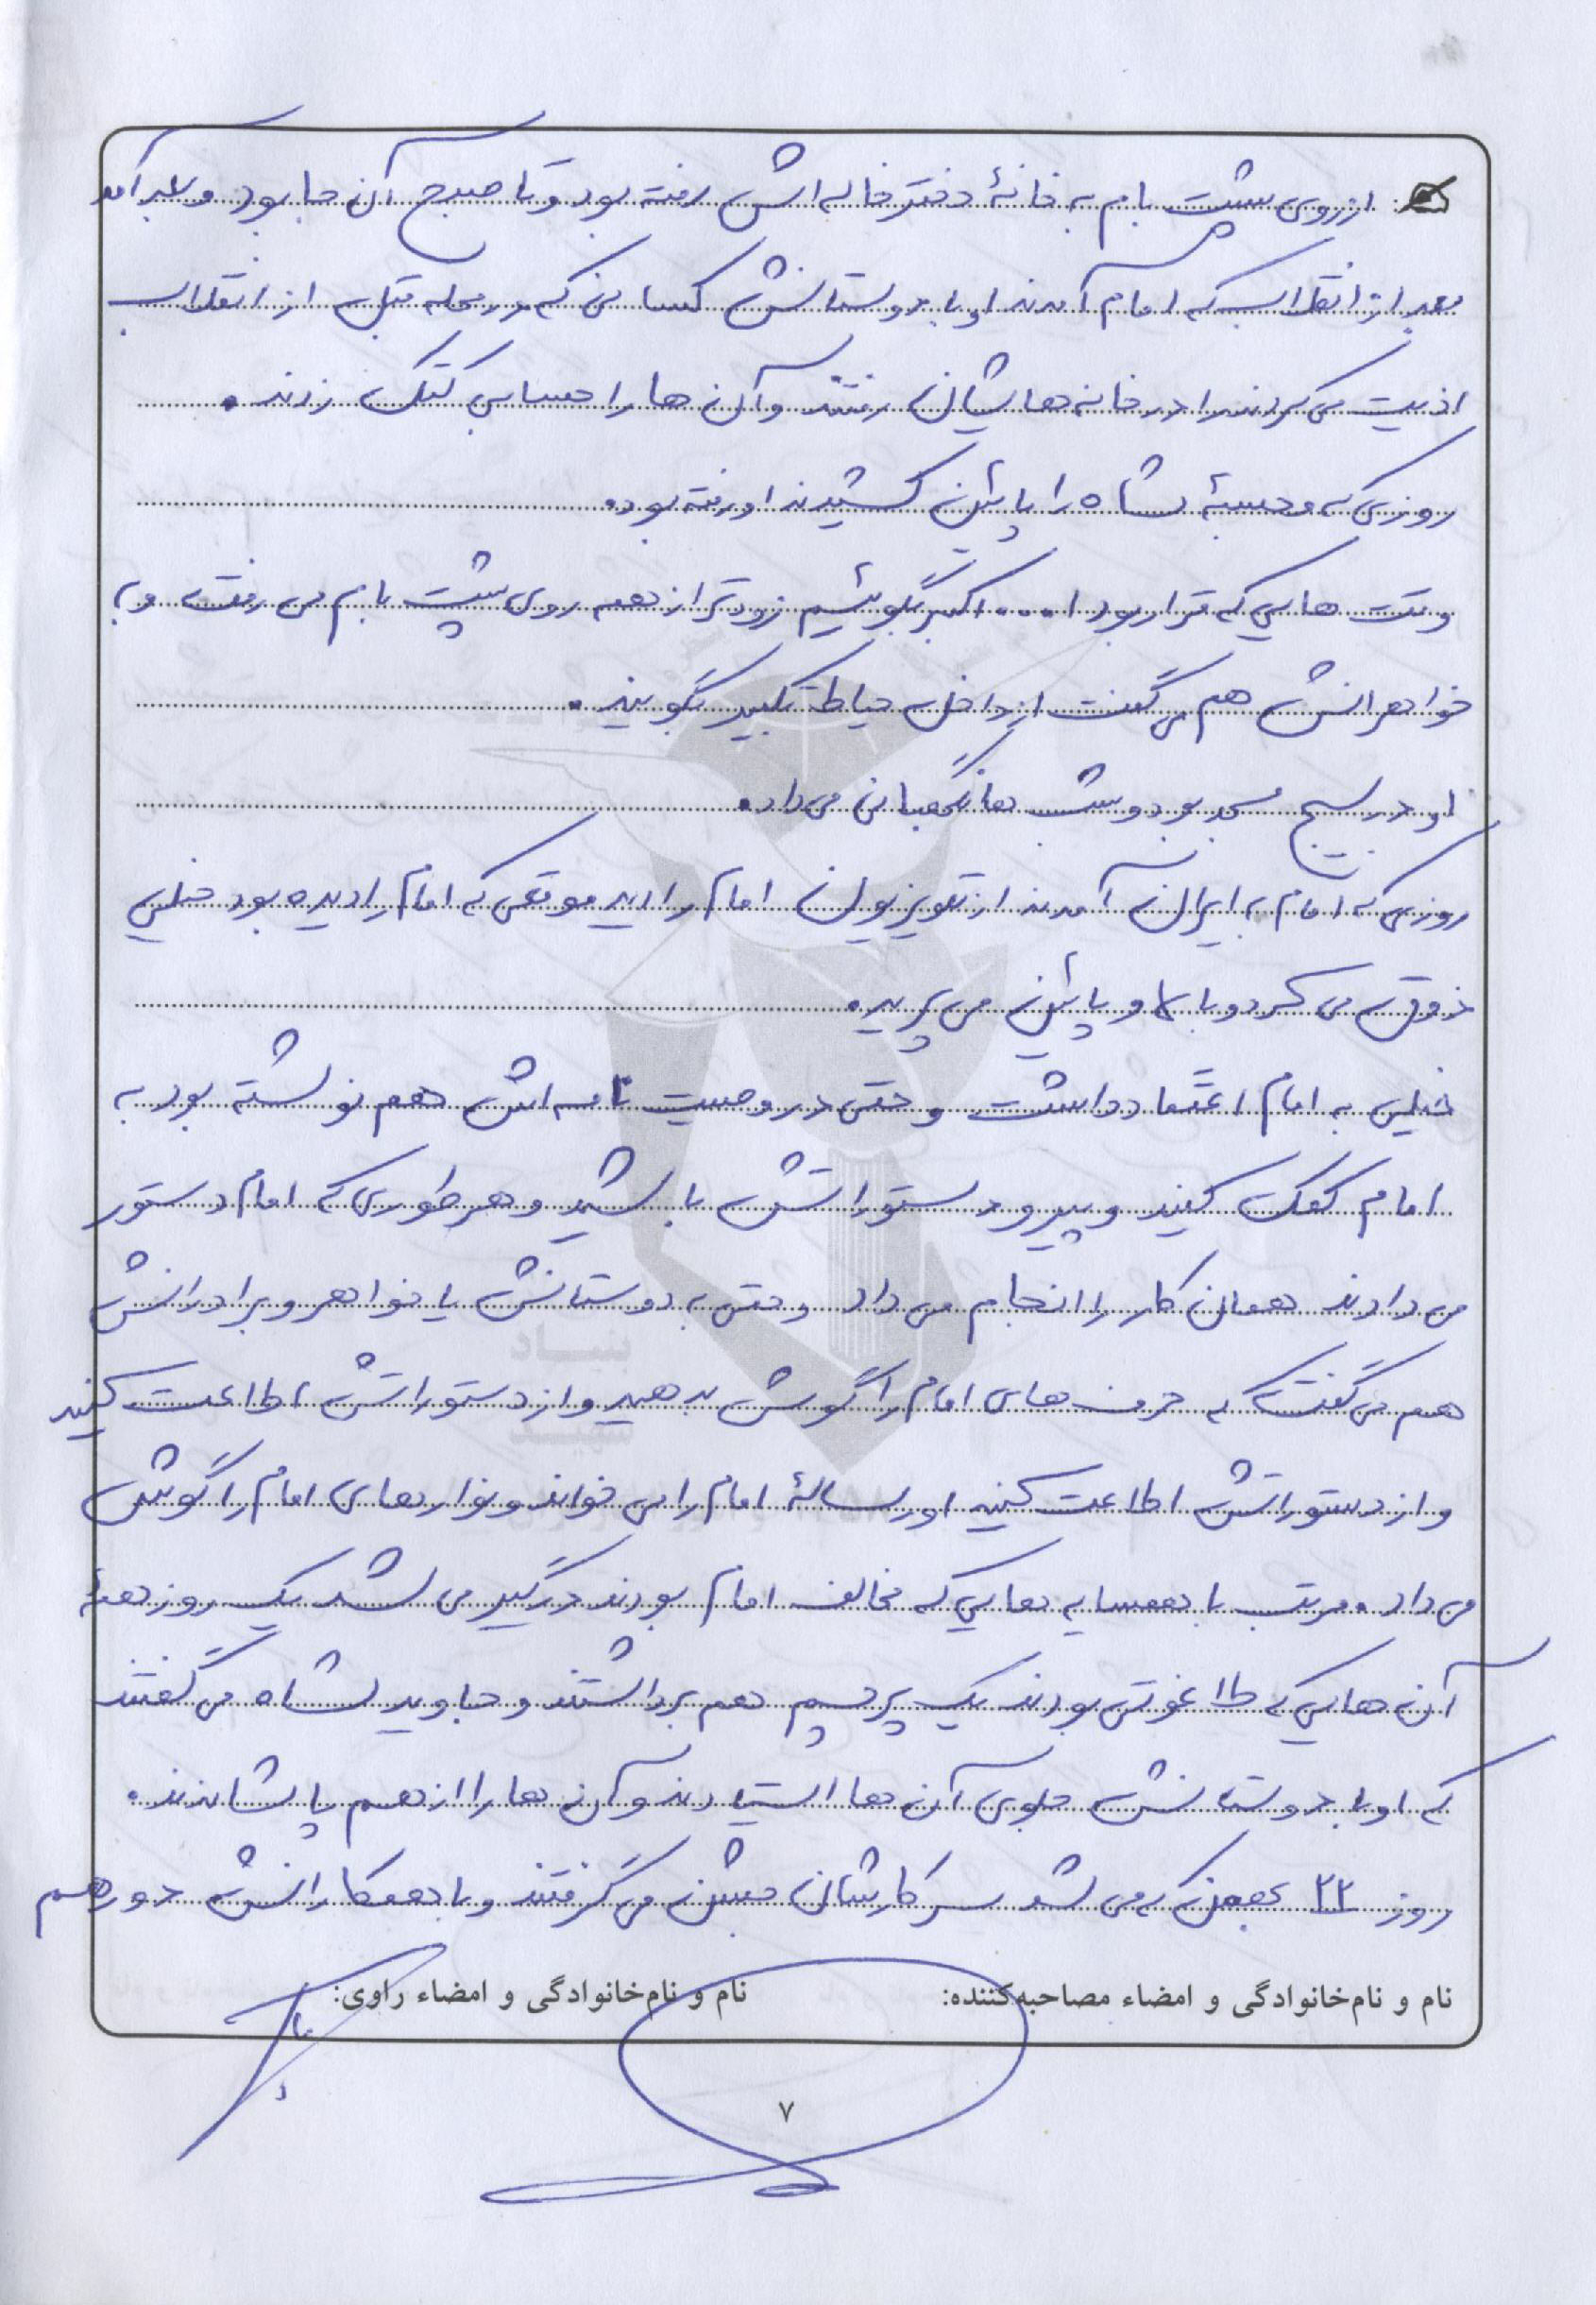 از روی پشت بام به خانهٔ دختر خاله اش رفته بود و تا صبح آن جا بود و بعد آمد
بعد از انقلاب که امام آمدند او با دوستانش کسانی که در محله قبل از انقلاب
اذیت می کردند را در خانه هایشان رفتند و آن ها را حسابی کتک زدند.
روزی که مجسمهٔ شاه را پائین کشیدند او رفته بود.
وقت هایی که قرار بود ا... اکبر بگوئیم زودتر از همه روی پشت بام می رفت و به
خواهرانش هم می گفت از داخل حیاط تکبیر بگویند.
او در بسیج مسجد بود و شب ها نگهبانی می داد.
روزی که امام به ایران آمدند از تلویزیون امام را دید موقعی که امام را دیده بود خیلی
ذوق می کرد و بالا و پائین می پرید.
خیلی به امام اعتقاد داشت و حتی در وصیت نامه اش هم نوشته بود به
امام کمک کنید و پیرو دستوراتش باشید و هر طوری که امام دستور
می دادند همان کار را انجام می داد و حتی به دوستانش یا خواهر و برادرانش
هم می گفت که حرف های امام را گوش بدهید و از دستوراتش اطاعت کنید
و از دستوراتش اطاعت کنید او رسالهٔ امام را می خواند و نوارهای امام را گوش
می داد. مرتب با همسایه هایی که مخالف امام بودند درگیر می شد یک روز همهٔ
آن هایی که طاغوتی بودند یک پرچم هم برداشتند و جاوید شاه می گفتند
که او با دوستانش جلوی آن ها ایستادند و آن ها را از هم پاشاندند.
روز ۲۲ بهمن که می شد سر کارشان جشن می گرفتند و با همکارانش دور هم
نام و نام‌خانوادگی و امضاء مصاحبه‌کننده: نام و نام‌خانوادگی و امضاء راوی:
۷